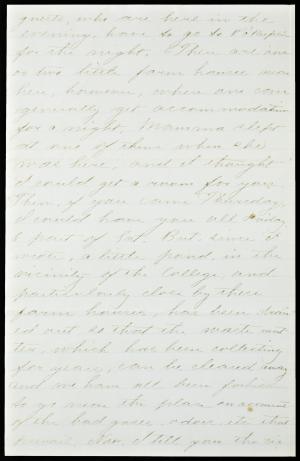 guests, who are here in the
evening, have to go to P'keepsie
for the night. There are one
or two little farm houses near
here, however, where one can
generally get accommodation
for a night, Mamma slept
at one of them when she
was here, and I thought
I could get a room for you.
Then, if you came Thursday,
I could have you all Friday
& part of Sat. But, since I
wrote, a little pond, in the
vicinity of the College, and
particularly close by these
farm houses, has been drain
ed out so that the waste mat
ter, which has been collecting
for years, can be cleared away
and we have all been forbidden
to go near the place on account
of the bad gases, odors, etc that
prevail. Now, I tell you the